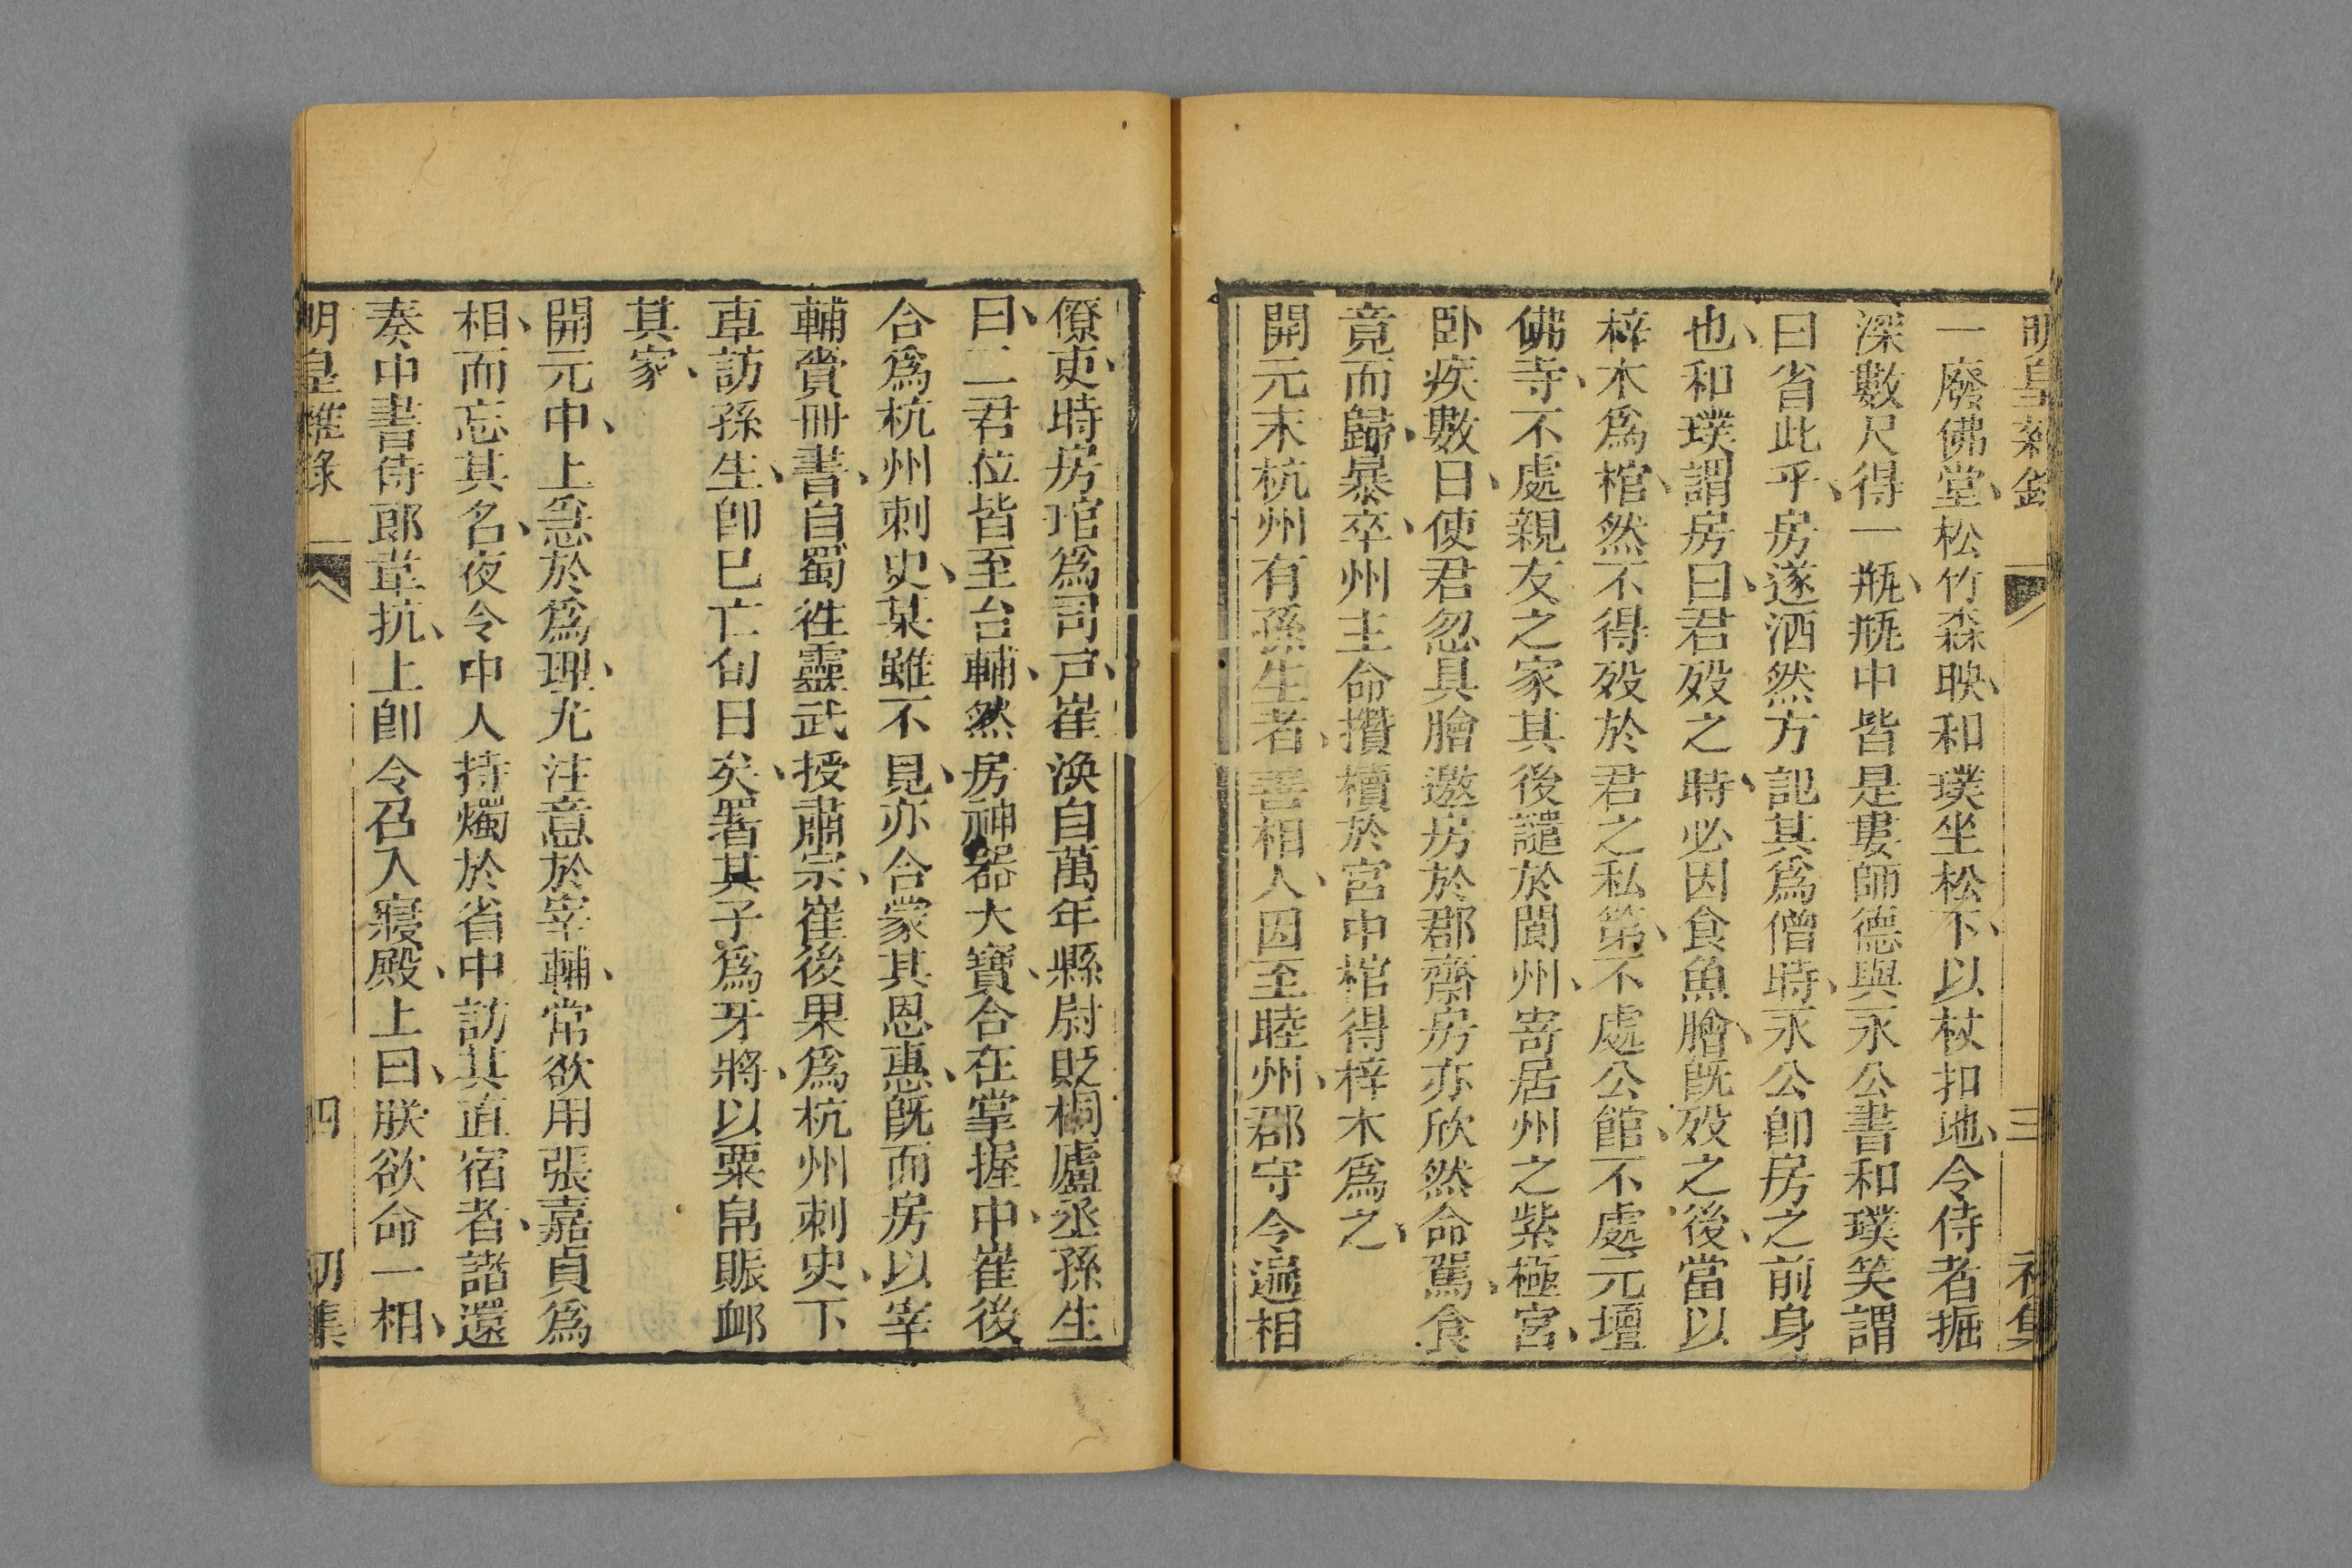 明皇雜錄 三 初集
一廢佛堂、松竹森映、和璞坐松下、以杖扣地、令侍者掘
深數尺得一瓶、瓶中皆是婁師德與永公書和璞笑謂
曰省此乎、房遂洒然方記其爲僧時、永公卽房之前身
也、和璞謂房曰、君歿之時、必因食魚膾、旣歿之後、當以
梓木爲棺、然不得歿於君之私第、不處公館、不處元壇
佛寺、不處親友之家其後譴於閬州、寄居州之紫極宮、
卧疾數日、使君忽具膾邀房於郡齋房亦欣然命駕、食
竟而歸、暴卒、州主命攢櫝於宮中棺得梓木爲之、
開元末杭州有孫生者、善相人、因至睦州、郡守令遍相
僚吏、時房琯爲司戶、崔渙自萬年縣尉貶桐廬丞孫生
曰、二君位皆至台輔、然房神器大寶、合在掌握中、崔後
合爲杭州刺史、某雖不見、亦合蒙其恩惠、旣而房以宰
輔賫冊書、自蜀徃靈武授肅宗、崔後果爲杭州刺史、下
車訪孫生、卽已亡旬日矣、署其子爲牙將、以粟帛賑卹
其家、
開元中、上急於爲理、尤注意於宰輔、常欲用張嘉貞爲
相、而忘其名、夜令中人持燭於省中訪其直宿者、諮還
奏中書侍郎韋抗、上卽令召入寢殿、上曰、朕欲命一相、
明皇雜錄 四 初集